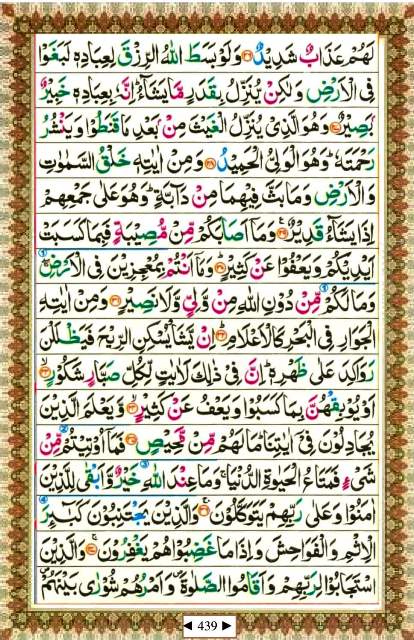 لَهُمْ عَذَابٌ شَدِيْدٌ ۝۲۶ وَلَوْ بَسَطَ اللّٰهُ الرِّزْقَ لِعِبَادِهٖ لَبَغَوْا
فِى الْاَرْضِ وَلٰكِنْ يُّنَزِّلُ بِقَدَرٍ مَّا يَشَآءُ ؕ اِنَّهٗ بِعِبَادِهٖ خَبِيْرٌۢ
بَصِيْرٌ ۝۲۷ وَهُوَ الَّذِىْ يُنَزِّلُ الْغَيْثَ مِنْۢ بَعْدِ مَا قَنَطُوْا وَيَنْشُرُ
رَحْمَتَهٗ ؕ وَهُوَ الْوَلِىُّ الْحَمِيْدُ ۝۲۸ وَمِنْ اٰيٰتِهٖ خَلْقُ السَّمٰوٰتِ
وَالْاَرْضِ وَمَا بَثَّ فِيْهِمَا مِنْ دَآبَّةٍ ؕ وَهُوَ عَلٰى جَمْعِهِمْ
اِذَا يَشَآءُ قَدِيْرٌ ۝۲۹ وَمَاۤ اَصَابَكُمْ مِّنْ مُّصِيْبَةٍ فَبِمَا كَسَبَتْ
اَيْدِيْكُمْ وَيَعْفُوْا عَنْ كَثِيْرٍ ۝۳۰ وَمَاۤ اَنْتُمْ بِمُعْجِزِيْنَ فِى الْاَرْضِ
وَمَا لَكُمْ مِّنْ دُوْنِ اللّٰهِ مِنْ وَّلِىٍّ وَّلَا نَصِيْرٍ ۝۳۱ وَمِنْ اٰيٰتِهِ
الْجَوَارِ فِى الْبَحْرِ كَالْاَعْلَامِ ۝۳۲ اِنْ يَّشَاْ يُسْكِنِ الرِّيْحَ فَيَظْلَلْنَ
رَوَاكِدَ عَلٰى ظَهْرِهٖ ؕ اِنَّ فِىْ ذٰلِكَ لَاٰيٰتٍ لِّكُلِّ صَبَّارٍ شَكُوْرٍ ۝۳۳
اَوْ يُوْبِقْهُنَّ بِمَا كَسَبُوْا وَيَعْفُ عَنْ كَثِيْرٍ ۝۳۴ وَّيَعْلَمَ الَّذِيْنَ
يُجَادِلُوْنَ فِىْۤ اٰيٰتِنَا ؕ مَا لَهُمْ مِّنْ مَّحِيْصٍ ۝۳۵ فَمَاۤ اُوْتِيْتُمْ مِّنْ
شَىْءٍ فَمَتَاعُ الْحَيٰوةِ الدُّنْيَا ۚ وَمَا عِنْدَ اللّٰهِ خَيْرٌ وَّاَبْقٰى لِلَّذِيْنَ
اٰمَنُوْا وَعَلٰى رَبِّهِمْ يَتَوَكَّلُوْنَ ۝۳۶ وَالَّذِيْنَ يَجْتَنِبُوْنَ كَبٰٓئِرَ
الْاِثْمِ وَالْفَوَاحِشَ وَاِذَا مَا غَضِبُوْا هُمْ يَغْفِرُوْنَ ۝۳۷ وَالَّذِيْنَ
اسْتَجَابُوْا لِرَبِّهِمْ وَاَقَامُوا الصَّلٰوةَ ۪ وَاَمْرُهُمْ شُوْرٰى بَيْنَهُمْ ۪
◄ 439 ►